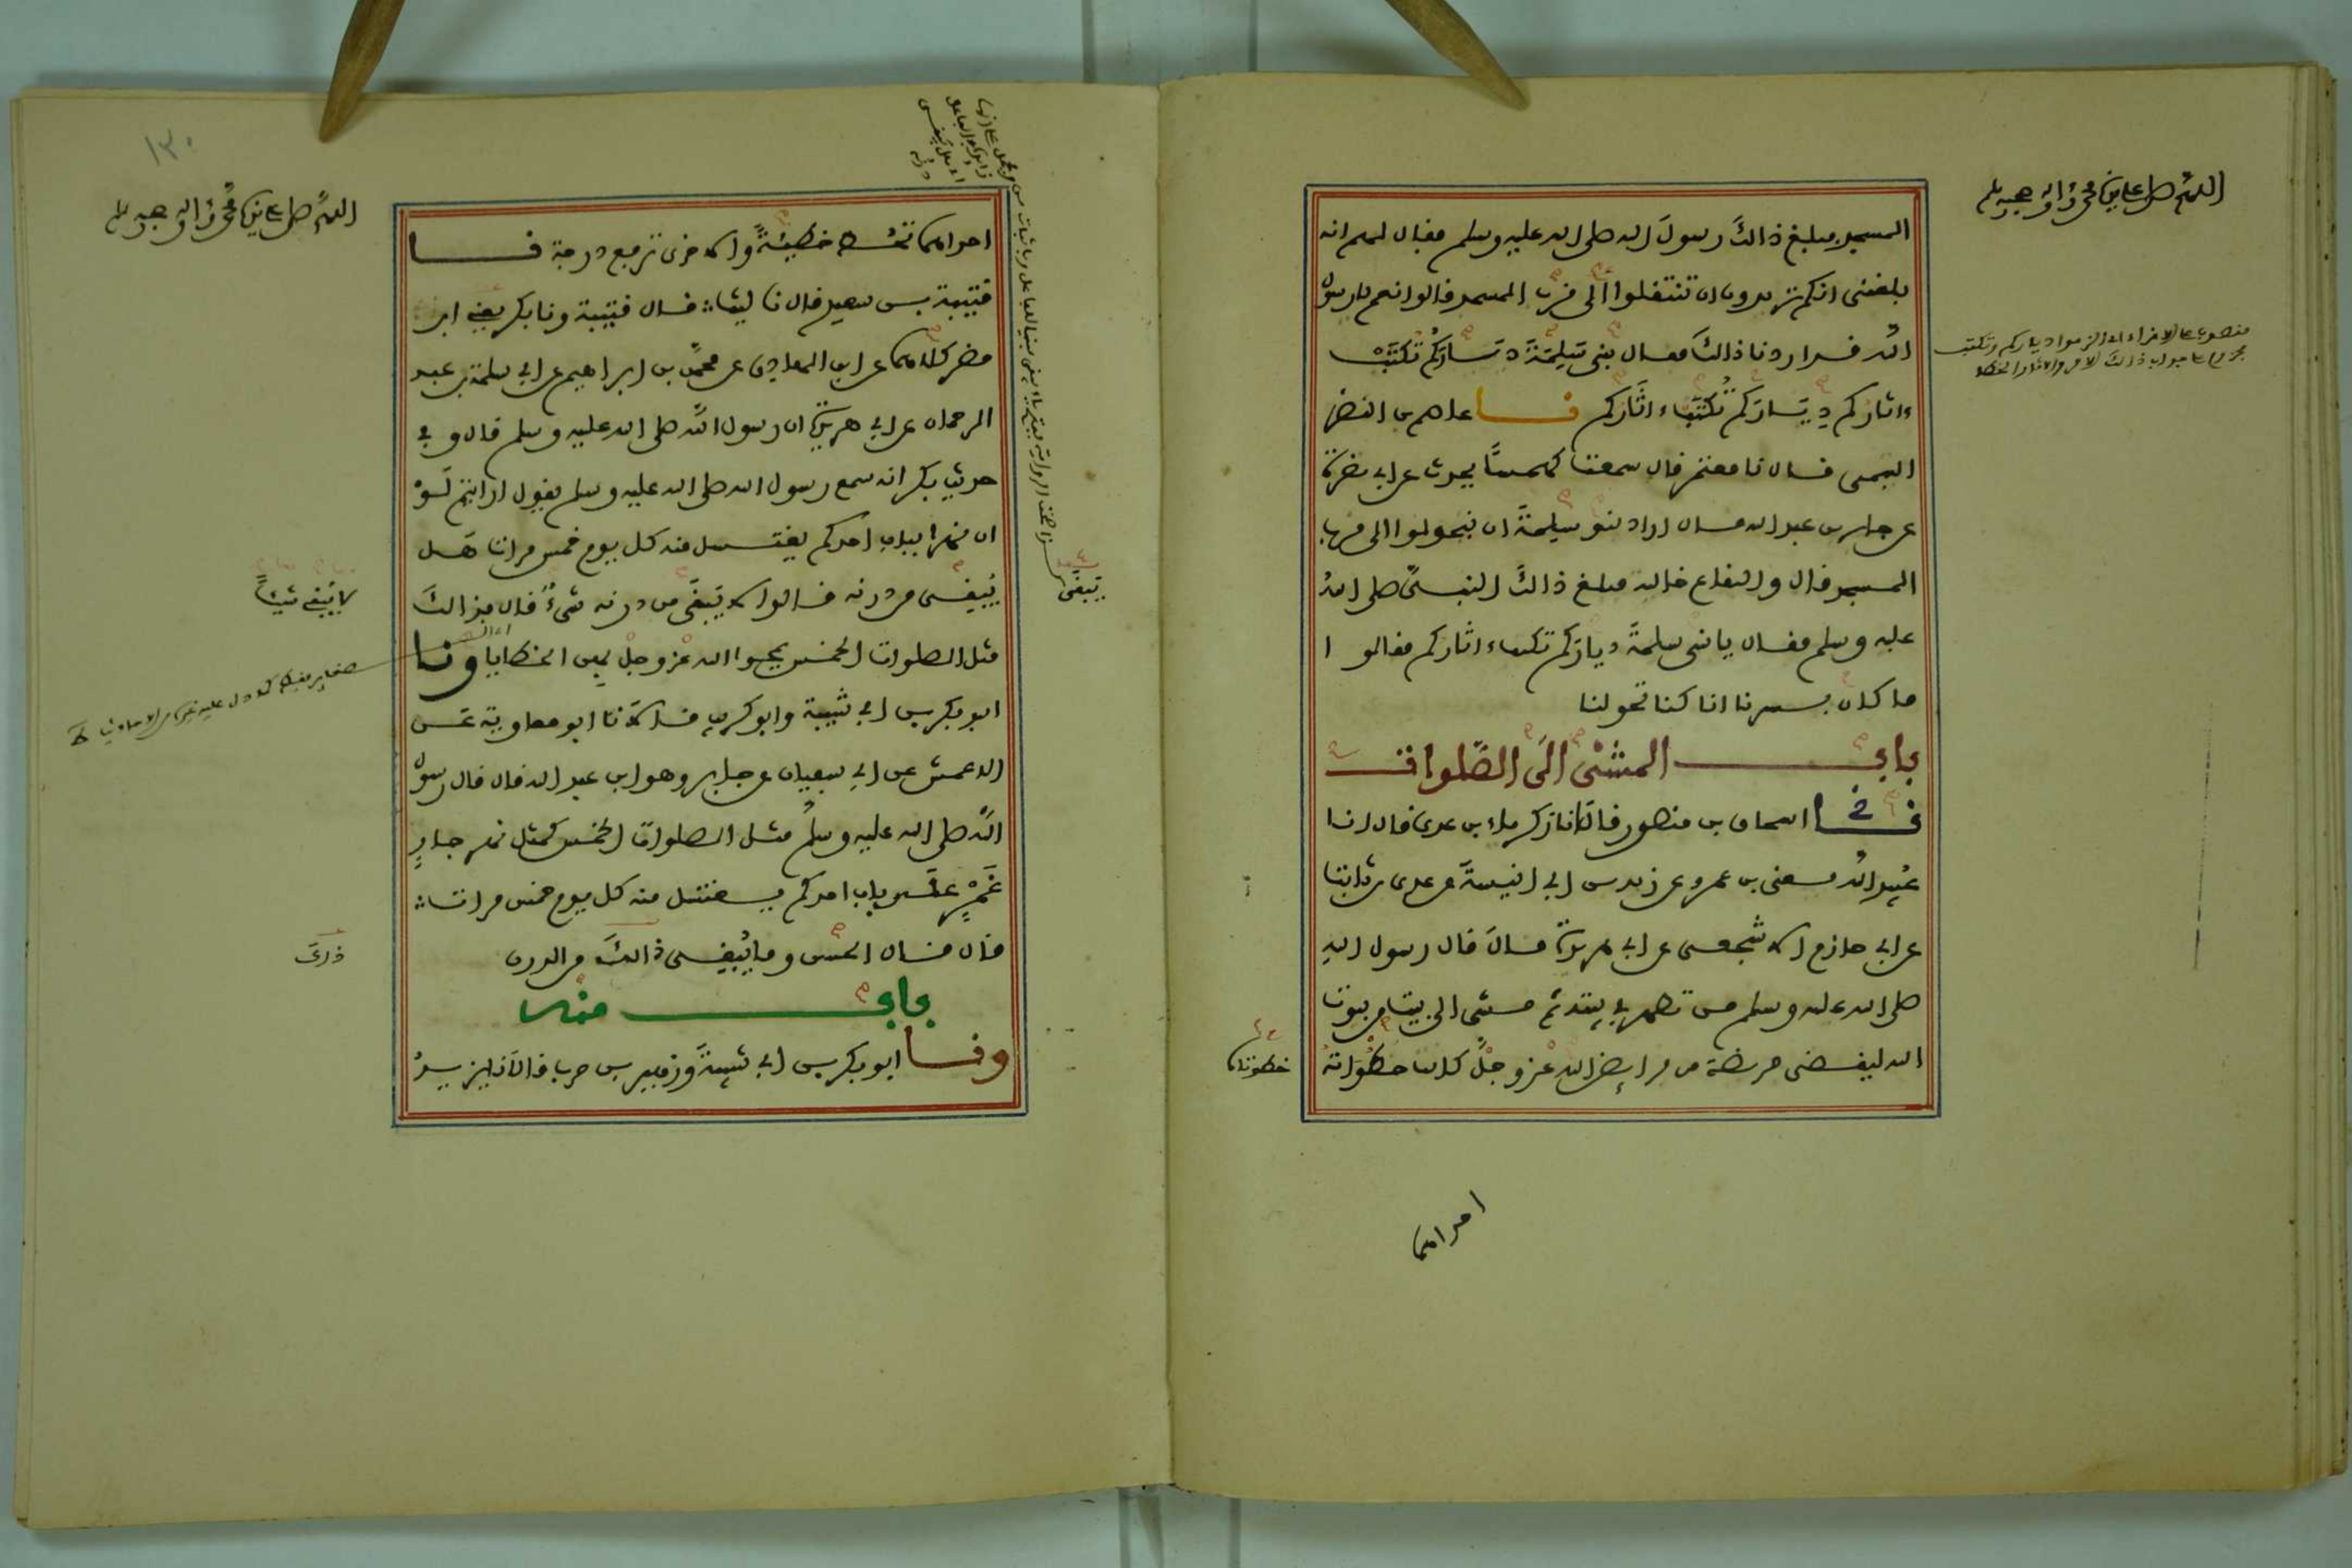 اللهم صل على نبينا محمد واله وصحبه وسلم
المسجد فبلغ ذالك رسول الله صلى الله عليه وسلم فقال لهم انه
بلغنى انكم تريدون ان تنتقلوا الى قرب المسجد قالوا نعم يا رسول
الله قد اردنا ذالك فقال بنى سلمة دياركم تكتب
ءاثاركم دياركم تكتب ءاثاركم نا عاصم بن النضر
التيمى قال نا معتمر قال سمعت كهمسا يحدث عن ابى نضرة
عن جابر بن عبد الله قال اراد بنو سلمة ان يتحولوا الى قرب
المسجد قال والبقاع خالية فبلغ ذالك النبى صلى الله
عليه وسلم فقال يا بنى سلمة دياركم تكتب ءاثاركم فقالوا
ما كان يسرنا انا كنا تحولنا
باب المشى الى الصلوات
نا اسحاق بن منصور قال انا زكرياء بن عدى قال انا
عبيد الله يعنى بن عمرو عن زيد بن ابى انيسة عن عدى بن ثابت
عن ابى حازم الاشجعى عن ابى هريرة قال قال رسول الله
صلى الله عليه وسلم من تطهر فى بيته ثم مشى الى بيت من بيوت
الله ليقضى فريضة من فرايض الله عز وجل كانت خطواته
خطوتاه
احداهما
١٣٠
اللهم صل على نبينا محمد واله وصحبه وسلم
احداهما تحط خطيئة والاخرى ترفع درجة نا
قتيبة بن سعيد قال نا ليث قال قتيبة ونا بكر يعنى ابن
مضر كلاهما عن ابن الهادى عن محمد بن ابراهيم عن ابى سلمة بن عبد
الرحمان عن ابى هريرة ان رسول الله صلى الله عليه وسلم قال وفى
حديث بكر انه سمع رسول الله صلى الله عليه وسلم يقول ارايتم لو
ان نهرا بباب احدكم يغتسل منه كل يوم خمس مرات هل
يبقى من درنه قالوا لا يبقى من درنه شىء قال فذالك
مثل الصلوات الخمس يمحوا الله عز وجل بهن الخطايا ونا
ابو بكر بن ابى شيبة وابو كريب قالا نا ابو معاوية عن
الاعمش عن ابى سفيان عن جابر وهو ابن عبد الله قال قال رسول
الله صلى الله عليه وسلم مثل الصلوات الخمس كمثل نهر جار
غمر على باب احدكم يغتسل منه كل يوم خمس مرات
قال قال الحسن وما يبقى ذالك من الدرن
باب منه
ونا ابو بكر بن ابى شيبة وزهير بن حرب قالا نا يزيد
يبقى
لا يبقى شيئا
ذلك